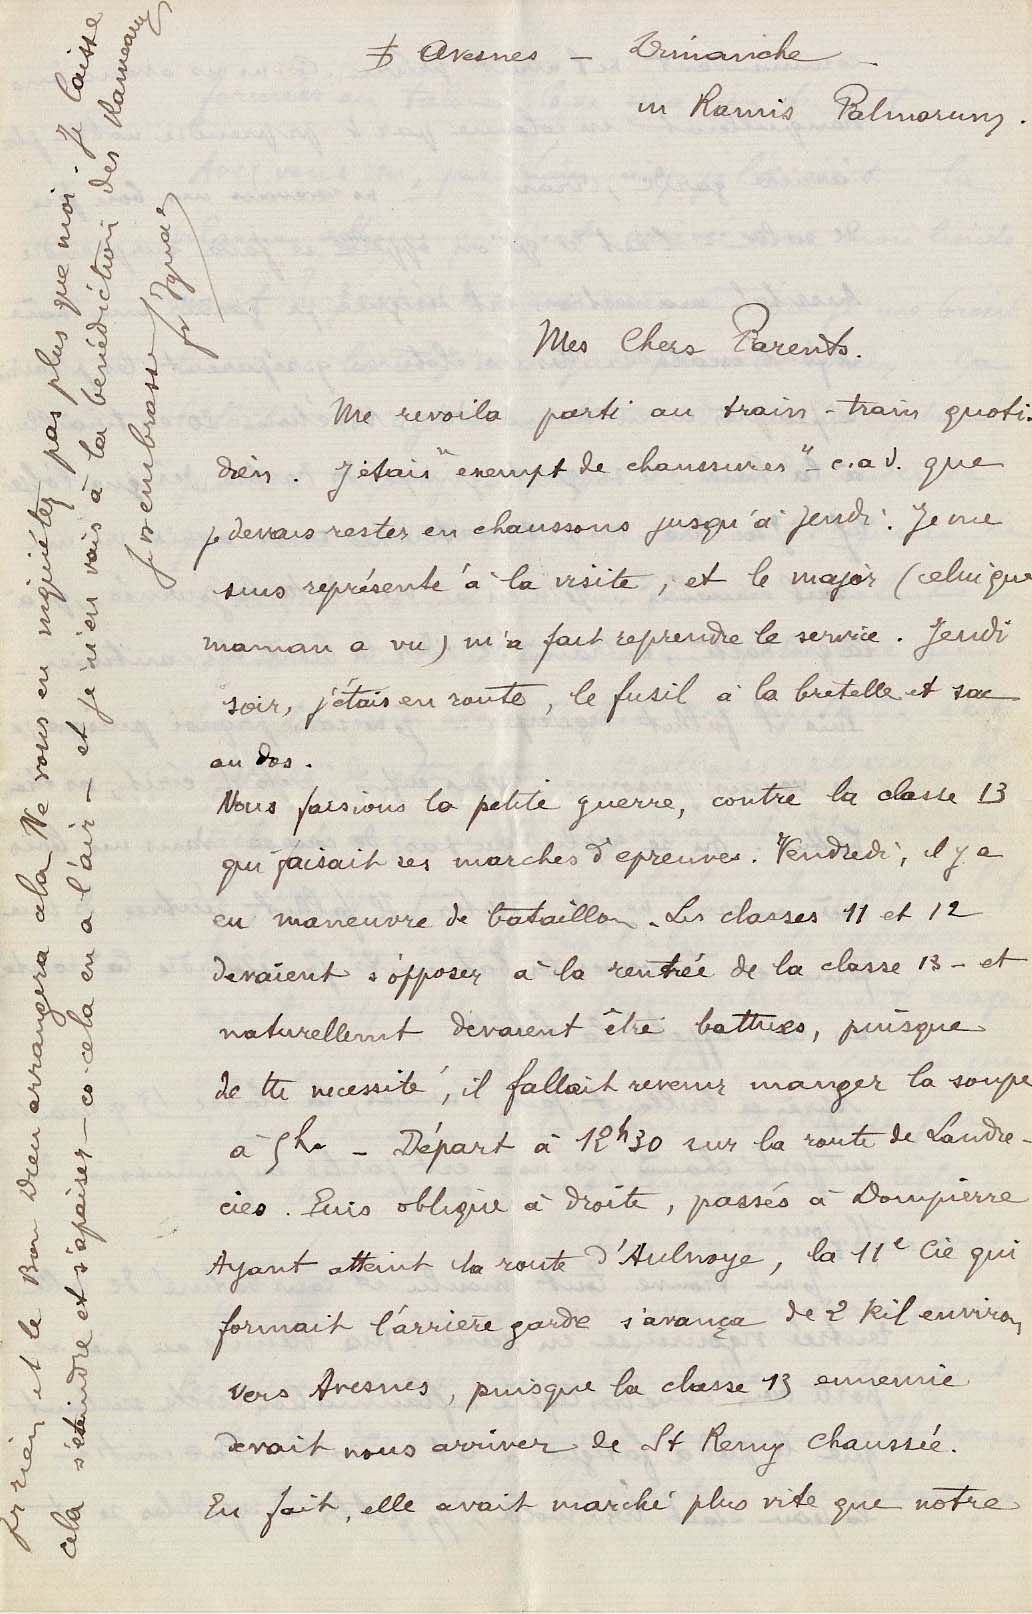 Avesnes – Dimanche –
in Ramis Palmarum.
Mes Chers Parents.
Me revoila parti au train-train quoti-
dien. J'étais "exempt de chaussures" – c.a d. que
je devais rester en chaussons jusqu'à Jeudi. Je me
suis représenté à la visite, et le major (celui que
maman a vu) m'a fait reprendre le service. Jeudi
soir, j'étais en route, le fusil à la bretelle et sac
au dos.
Nous faisions la petite guerre, contre la classe 13
qui faisait ses marches d'epreuves. Vendredi, il y a
eu maneuvre de bataillon. Les classes 11 et 12
devaient s'opposer à la rentrée de la classe 13 – et
naturellemt devaient être battues, puisque
de tte necessité, il fallait revenir manger la soupe
à 5h. – Départ à 12h30 sur la route de Landre-
cies. Puis oblique à droite, passés à Dompierre
Ayant atteint la route d'Aulnoye, la 11e Cie qui
formait l'arrière garde s'avança de 2 Kil environ
vers Avesnes, puisque la classe 13 ennemie
devait nous arriver de St Remy Chaussée.
En fait, elle avait marché plus vite que notre
priez et le Bon Dieu arrangera cela Ne vous en inquiétez pas plus que moi. Je laisse
cela s'éteindre et s'apaiser – co cela en a l'air – et je m'en vais à la bénédiction des Rameaux
Je vs embrasse
fr Ignace